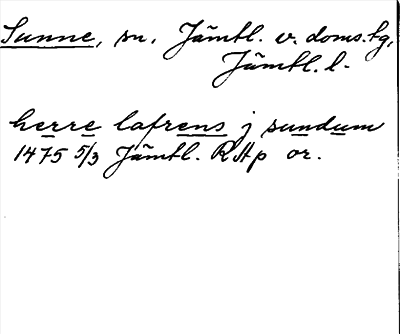 Sunne, sn, Jämtl. v. doms.hg,
Jämtl. l.
herre lafrens j sundum
1475 5/3 Jämtl. RAp or.